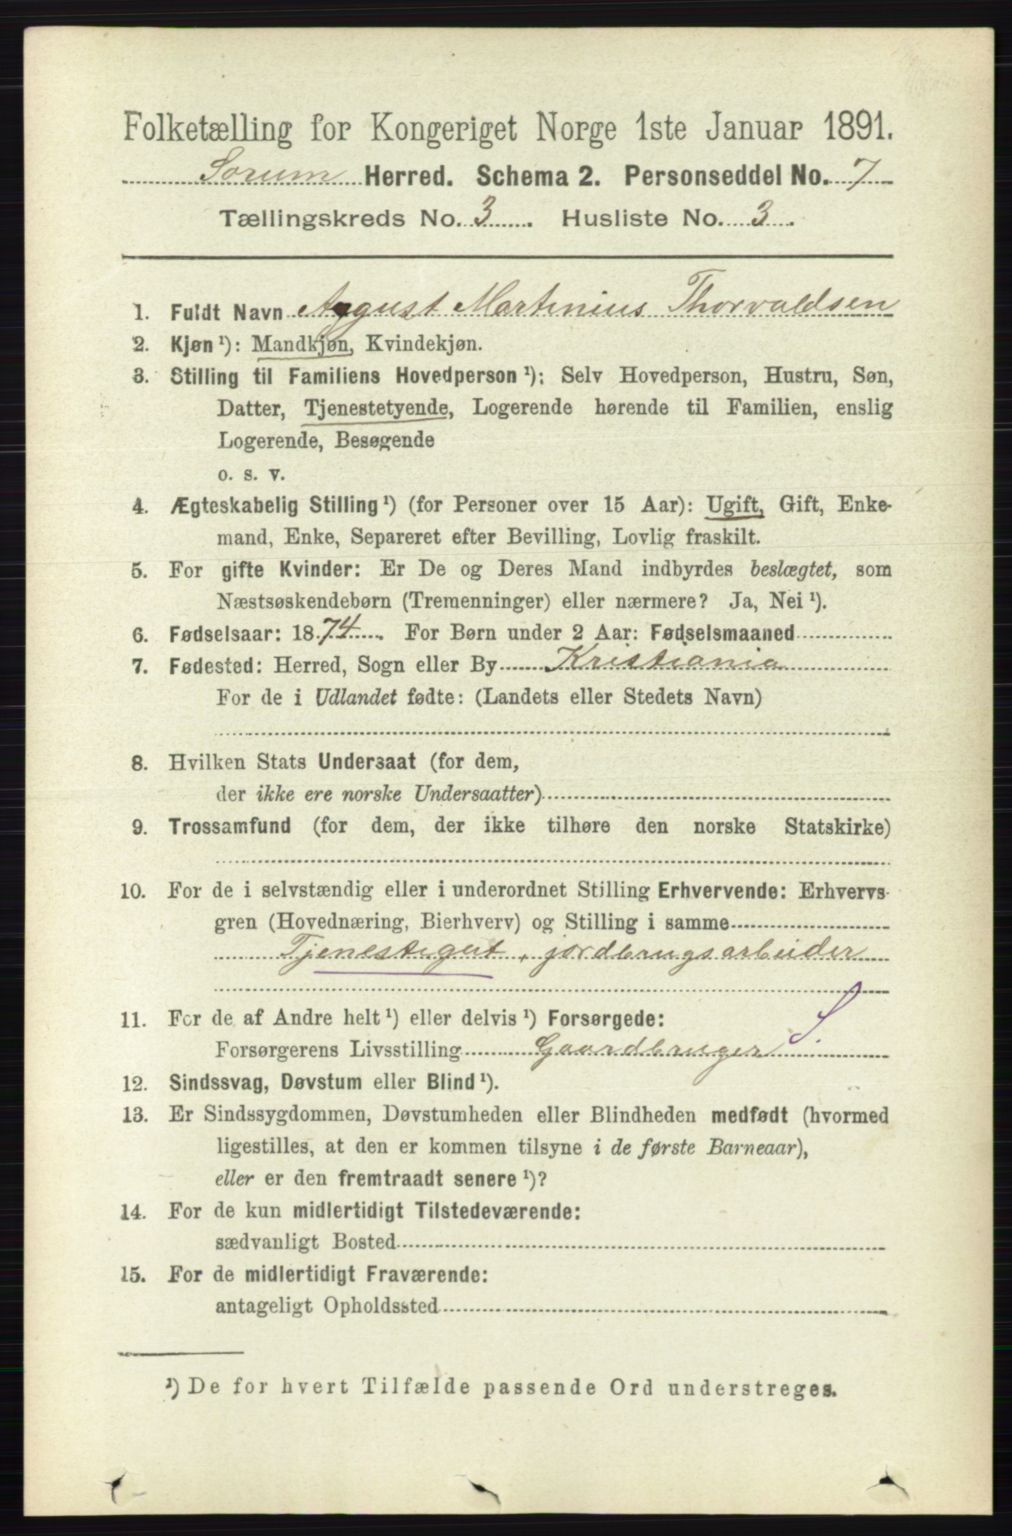 Folketælling for Kongeriget Norge 1ste Januar 1891.
Sorum Herred. Schema 2. Personseddel No. 7
Tællingskreds No. 3. Husliste No. 3.
1. Fuldt Navn August Martinius Thorvaldsen
2. Kjøn ¹): Mandkjøn, Kvindekjøn.
3. Stilling til Familiens Hovedperson ¹): Selv Hovedperson, Hustru, Søn,
Datter, Tjenestetyende, Logerende hørende til Familien, enslig
Logerende, Besøgende
o. s. v.
4. Ægteskabelig Stilling ¹) (for Personer over 15 Aar): Ugift, Gift, Enke-
mand, Enke, Separeret efter Bevilling, Lovlig fraskilt.
5. For gifte Kvinder: Er De og Deres Mand indbyrdes beslægtet, som
Næstsøskendebørn (Tremenninger) eller nærmere? Ja, Nei ¹).
6. Fødselsaar: 1874. For Børn under 2 Aar: Fødselsmaaned
7. Fødested: Herred, Sogn eller By Kristiania
For de i Udlandet fødte: (Landets eller Stedets Navn)
8. Hvilken Stats Undersaat (for dem,
der ikke ere norske Undersaatter)
9. Trossamfund (for dem, der ikke tilhøre den norske Statskirke)
10. For de i selvstændig eller i underordnet Stilling Erhvervende: Erhvervs-
gren (Hovednæring, Bierhverv) og Stilling i samme
Tjenestegut, jordbrugsarbeider
11. For de af Andre helt ¹) eller delvis ¹) Forsørgede: S.
Forsørgerens Livsstilling Gaardbruger
12. Sindssvag, Døvstum eller Blind ¹).
13. Er Sindssygdommen, Døvstumheden eller Blindheden medfødt (hvormed
ligestilles, at den er kommen tilsyne i de første Barneaar),
eller er den fremtraadt senere ¹)?
14. For de kun midlertidigt Tilstedeværende:
sædvanligt Bosted
15. For de midlertidigt Fraværende:
antageligt Opholdssted
¹) De for hvert Tilfælde passende Ord understreges.